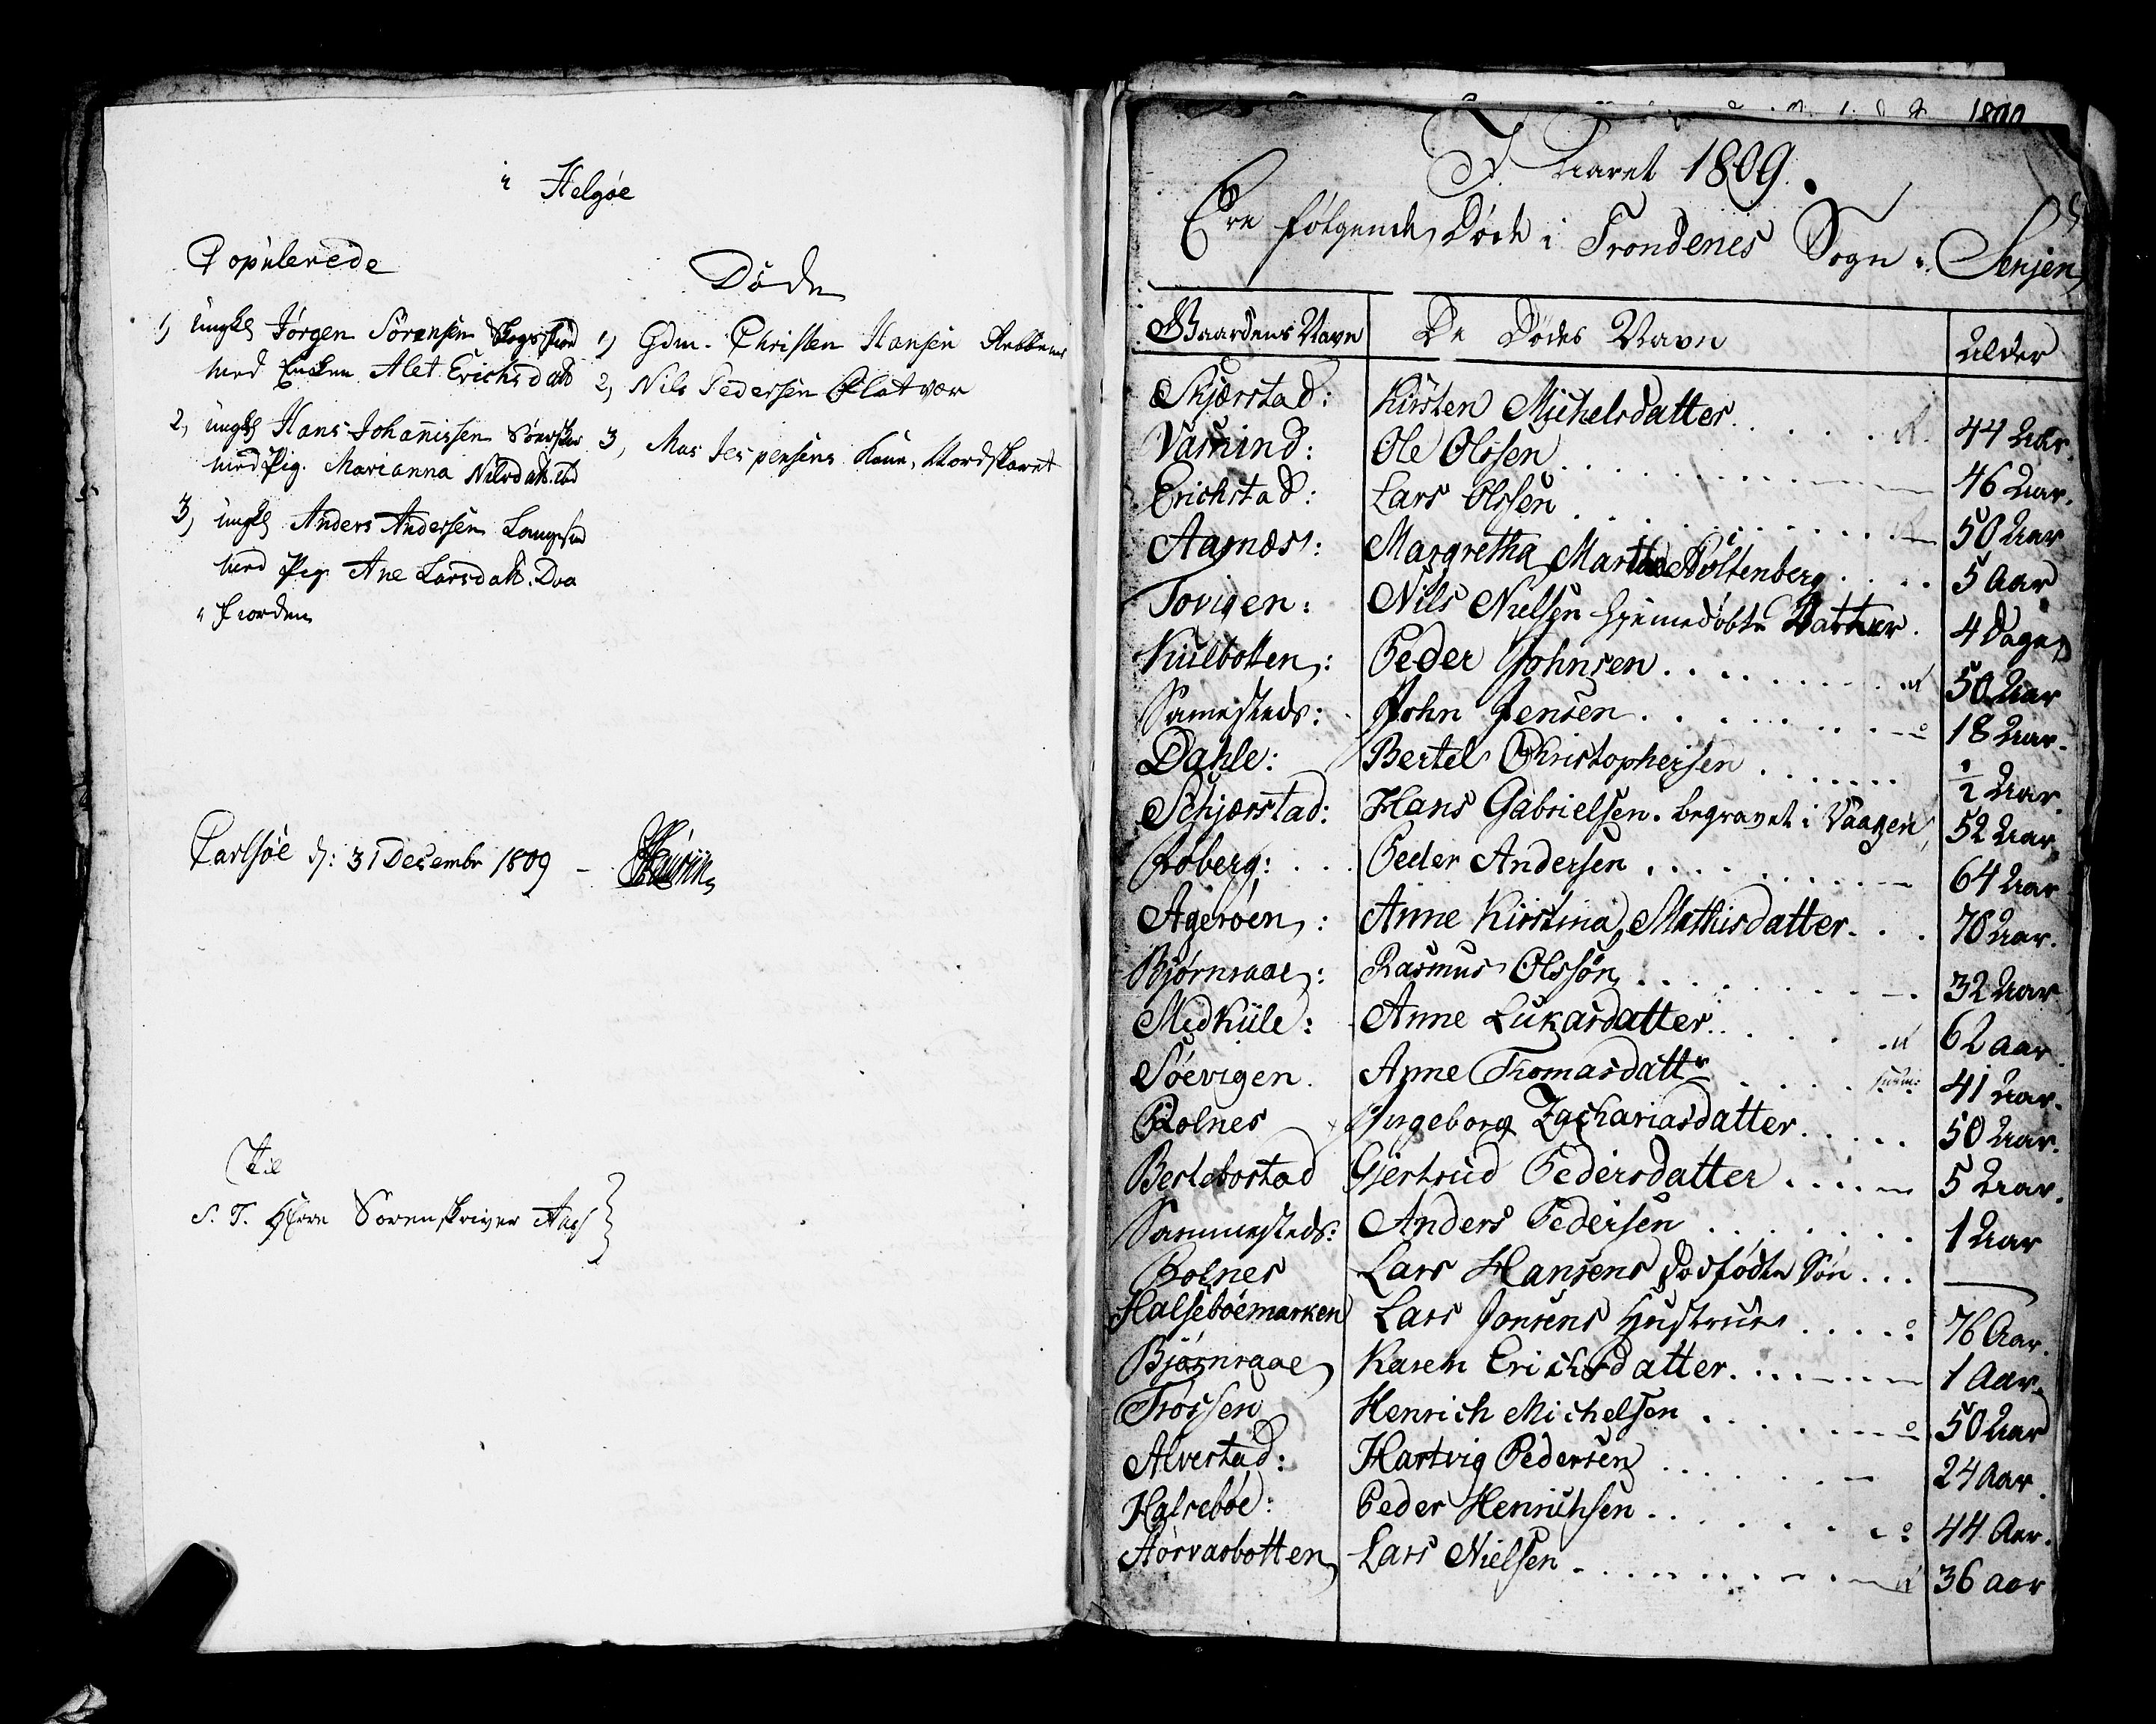 i Helgøe
Copulerede
1, ungk Jørgen Sörensen
med Enken Alet Erichsdatt
2, ungk Hans Johannissen
med Pig. Marianna Nilsdatt.
3, ungk Anders Andersen
med Pig Ane Larsdatt.
i Fiorden
Døde
1, Gdm. Christen Hansen
2, Nils Pedersen Flatvær
3, Mas Jespersens Kone, Nordskaret
Carlsöe d: 31 Decembr 1809 –
Til
S. T. Herr Sorenskriver
I Aaret 1809.
Ere følgende Døde i Trondenes Sogn i Senjen
Gaardens Navn De Dødes Navn Alder
Skjærstad: Kirsten Michelsdatter 44 Aar.
Ole Olssen 46 Aar.
Erichstad: Lars Olssen 50 Aar
Aarnæs: Margretha Martha Holtenberg 5 Aar
Tovigen: Nils Nielsen hjemedøbte Datter 4 Dage
Kiilbotten: Peder Johnsen 50 Aar
Samesteds: John Jensen 18 Aar
Dahle: Bertel Christophersen 1/2 Aar.
Schjærstad: Hans Gabrielsen. begravet i Vaagen 52 Aar
Roberg: Peder Andersen 64 Aar
Ageröen: Anne Kirstina Mathisdatter 78 Aar.
Bjørnraae: Rasmus Olssøn 32 Aar
Medkiile: Anne Lukasdatter 62 aar
Søevigen. Anne Thomasdattr 41 Aar.
Rolnes Ingeborg Zachariasdatter 50 Aar.
Berlebostad Gjertrud Pedersdatter 5 Aar.
Sammesteds: Anders Pedersen 1 Aar
Rolnes Lars Hansens dødfødte Søn —
Halsebøemarken Lars Jonsens Hustrue 76 Aar.
Bjørnraae Karen Erichsdatter 1 Aar.
Trøssen Henrich Michelsen 50 Aar
Alvestad: Hartvig Pedersen 24 Aar
Halsebøe: Peder Henrichsen 44 Aar.
Størvasbotten Lars Nielsen 36 aar